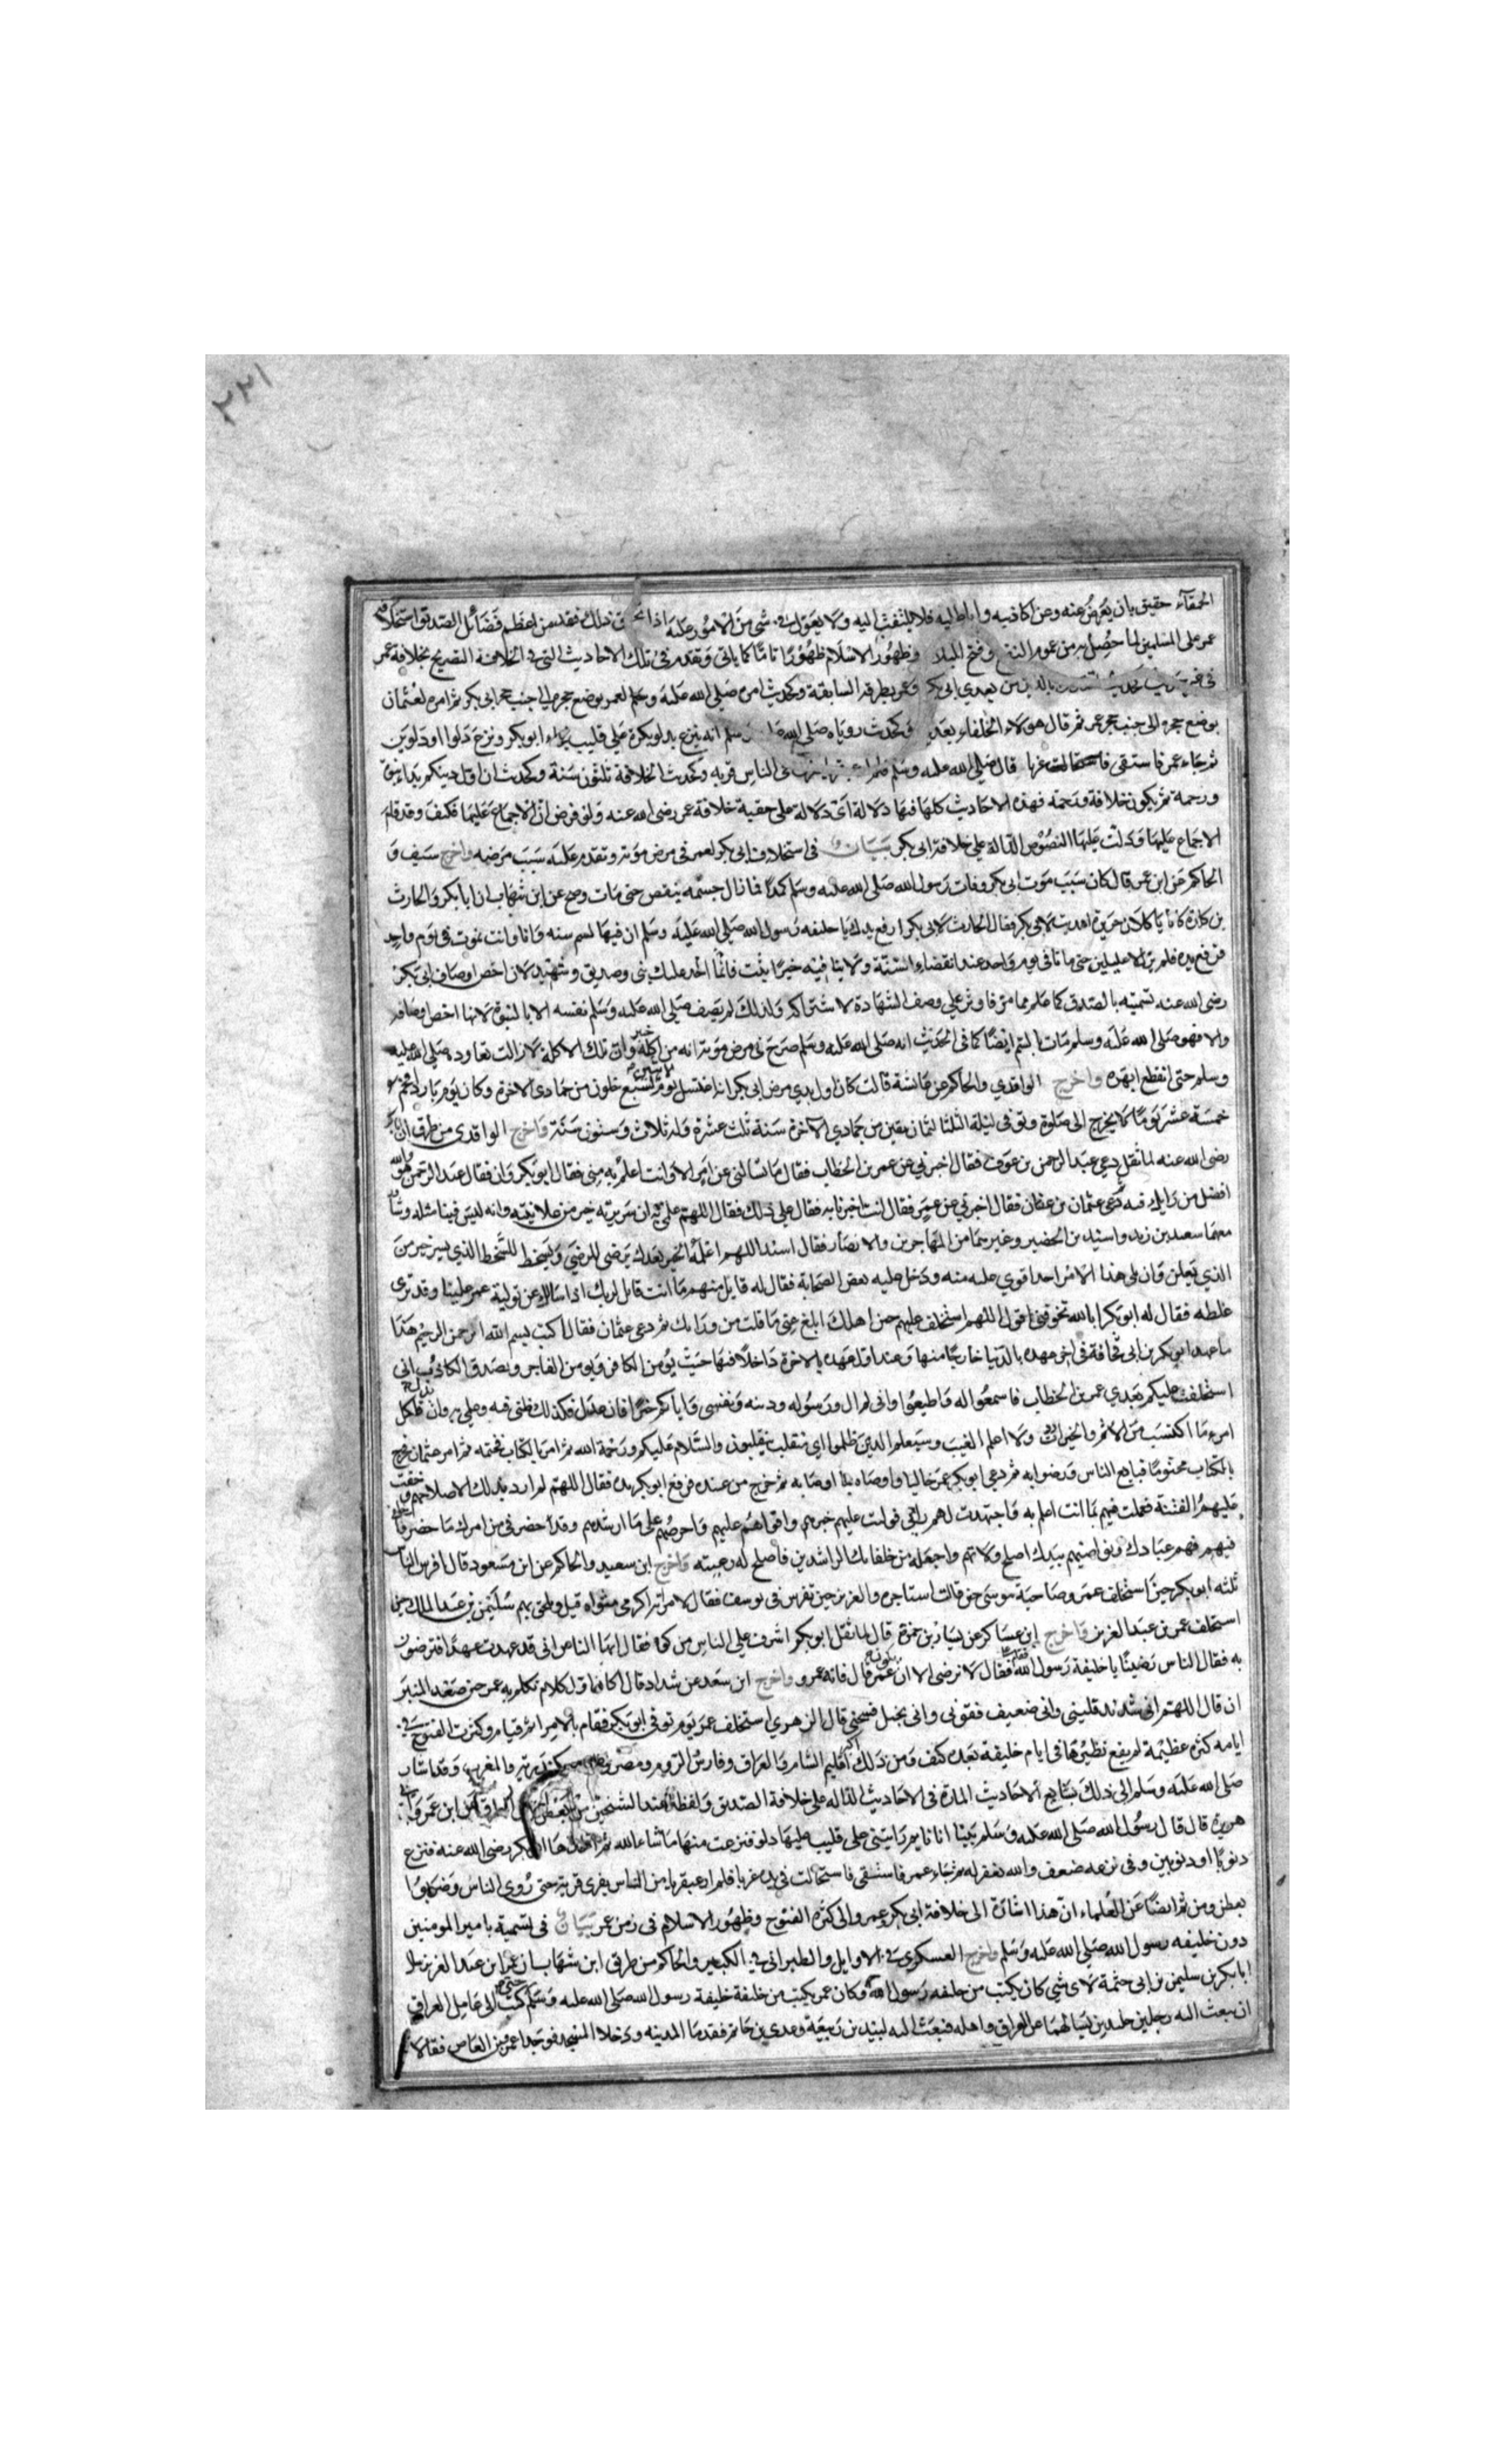 ٢٢١
الحمقآء حقيق بان يعرض عنه وعن اكاذيبه واباطيله فلا يلتفت اليه ولا يعول في شي من الامور عليه اذا تحقق ذلك فقد من اعظم فضائل الصديق استخلافه
عمر على المسلمين لما حصل به من عموم النفع وفتح البلاد وظهور الاسلام ظهورًا تامًا كما ياتي وتقدم في تلك الاحاديث التي في الخلافة التصريح بخلافة عمر
في غير بالذين من بعدي ابي بكر وعمر بطرقه السابقة وكحديث امره صلى الله عليه وسلم لعمر بوضع حجره الى جنب حجر ابي بكر ثم امره لعثمان
بوضع حجره الى جنب حجر عمر ثم قال هولاء الخلفاء بعدي وكحديث روياه صلى الله عليه وسلم انه ينزع بدلو بكرة على قليب فجاء ابو بكر ونزع دلوا او دلوين
ثم جاء عمر فاستقى فاستحالت غربا قال صلى الله عليه وسلم فلم ار عبقريا من الناس فريه وكحديث الخلافة ثلثون سنة وكحديث ان اول دينكم بدا نبوة
ورحمة ثم يكون خلافة ورحمة فهذه الاحاديث كلها فيها دلالة اي دلالة على حقية خلافة عمر رضى الله عنه ولو فرض ان الاجماع عليها فكيف وقد قام
الاجماع عليها ودلت عليها النصوص الدالة على خلافة ابي بكر بيان في استخلاف ابي بكر لعمر في مرض موته وتقدم عليه سبب مرضه واخرج سيف و
الحاكم عن ابن عمر قال كان سبب موت ابي بكر وفات رسول الله صلى الله عليه وسلم كمدًا فما زال جسمه ينقص حتى مات وصح عن ابن شهاب ان ابا بكر والحارث
بن كلدة كانا ياكلان حريرة اهديت لابي بكر فقال الحارث لابي بكر ارفع يدك يا خليفه رسول الله صلى الله عليه وسلم ان فيها لسم سنه وانا وانت نموت في يوم واحد
فرفع يده فلم يزالا عليلين حتى ماتا في يوم واحد عند انقضاء السنة ولا ينا فيه خبر اثبت فانما احد عليك نبى وصديق وشهيد لان اخص اوصاف ابي بكر
رضى الله عنه تسميته بالصديق كما علم مما مر فاوثر على وصف الشهادة لاشتراكه ولذلك لم يصف صلى الله عليه وسلم نفسه الا بالنبوة لانها اخص اوصافه
والا فهو صلى الله عليه وسلم مات بالسم ايضًا كما في الحديث انه صلى الله عليه وسلم صرح في مرض موته انه من اكلة خيبر وان تلك الاكلة لا زالت تعاوده صلى الله عليه
وسلم حتى انقطع ابهره واخرج الواقدي والحاكم عن عائشة قالت كان اول بدي مرض ابي بكر انه اغتسل يوم الاثنين لسبع خلون من جمادى الاخرة وكان يوم باردا فحم
خمسة عشر يومًا لا يخرج الى صلوة وتوفى ليلة الثلثا لثمان بقين من جمادي الآخرة سنة ثلث عشرة وله ثلاث وستون سنة واخرج الواقدي من طرق ان ابا بكر
رضى الله عنه لما ثقل دعي عبد الرحمن بن عوف فقال اخبرني عن عمر بن الخطاب فقال ما تسالني عن امر الا وانت اعلم به مني فقال ابو بكر وان فقال عبد الرحمن هو والله
افضل من رايك فيه ثم دعى عثمان بن عفان فقال اخبرني عن عمر فقال انت اخبرنا به فقال على ذلك فقال اللهم علمي به ان سريرته خير من علانيته وانه ليس فينا مثله وشاور
معهما سعيد بن زيد واسيد بن الحضير وغيرهما من المهاجرين والانصار فقال اسيد اللهم اعلمه الخير بعدك يرضى للرضى ويسخط للسخط الذي يسر خير من
الذي يعلن ولن يلي هذا الامر احد اقوي عليه منه ودخل عليه بعض الصحابة فقال له قايل منهم ما انت قايل لربك اذا سالك عن تولية عمر علينا وقد ترى
غلظه فقال له ابو بكر ابالله تخوفني اقول اللهم استخلف عليهم خير اهلك ابلغ عني ما قلت من ورائك ثم دعى عثمان فقال اكتب بسم الله الرحمن الرحيم هذا
ما عهد ابو بكر بن ابي قحافة في اخر عهده بالدنيا خارجًا منها وعند اول عهده بالاخرة داخلًا فيها حيث يؤمن الكافر ويوقن الفاجر ويصدق الكاذب اني
استخلفت عليكم بعدي عمر بن الخطاب فاسمعوا له واطيعوا واني لم آل الله ورسوله ودينه ونفسى واياكم خيرًا فان عدل فذلك ظني فيه وعلمي به وان بدل فلكل
امرء ما اكتسب من الاثم والخير اردت ولا اعلم الغيب وسيعلم الذين ظلموا اي منقلب ينقلبون والسلام عليكم ورحمة الله ثم امر بالكتاب فختمه ثم امر عثمان فخرج
بالكتاب مختومًا فبايع الناس ورضوا به ثم دعى ابو بكر عمر خاليا واوصاه بما اوصا به ثم خرج من عنده فرفع ابو بكر يده فقال اللهم لم ارد بذلك الا صلاحهم وخفت
عليهم الفتنة فعملت فيهم بما انت اعلم به واجتهدت لهم رائي فوليت عليهم خيرهم واقواهم عليهم واحرصهم على ما ارشدهم وقد احضرني من امرك ما حضر فاخلفني
فيهم فهم عبادك ونواصيهم بيدك اصلح ولاتهم واجعله من خلفائك الراشدين فاصلح له رعيته واخرج ابن سعيد والحاكم عن ابن مسعود قال افرس الناس
ثلثه ابو بكر حين استخلف عمر وصاحبة موسى حين قالت استاجره والعزيز حين تفرس في يوسف فقال لامراته اكرمي مثواه قيل ويلحق بهم سليمن بن عبد الملك حين
استخلف عمر بن عبد العزيز واخرج ابن عساكر عن يسار بن حمزة قال لما ثقل ابو بكر اشرف على الناس من كوة فقال ايها الناس اني قد عهدت عهدًا افترضون
به فقال الناس رضينا يا خليفة رسول الله فقام علي فقال لا نرضى الا ان يكون عمر قال فانه عمر و واخرج ابن سعد عن شداد قال كان اول كلام تكلم به عمر حين صعد المنبر
ان قال اللهم اني شديد فليني واني ضعيف فقوني واني بخيل فسخني قال الزهري استخلف عمر يوم توفى ابو بكر فقام بالامر اتم قيام وكثرت الفتوح في
ايامه كثرة عظيمة لم يقع نظيرها في ايام خليفة بعده كيف ومن ذلك اكثر اقليم الشام والعراق وفارس والروم ومصر والاسكندرية والمغرب وقد اشار
صلى الله عليه وسلم الى ذلك بسايع الاحاديث المارة في الاحاديث الدالة على خلافة الصديق ولفظه عند الشيخين من عن ابن عمر وابي
هريرة قال قال رسول الله صلى الله عليه وسلم بينا انا نايم رايتني على قليب عليها دلو فنزعت منها ما شاء الله ثم اخذها ابو بكر رضى الله عنه فنزع
ذنوبًا او ذنوبين وفي نزعه ضعف والله يغفر له ثم جاء عمر فاستسقى فاستحالت في يده غربا فلم ار عبقريا من الناس يفري فريه حتى روى الناس وضربوا
بعطن ومن ثم ايضًا عن العلماء ان هذا اشارة الى خلافة ابي بكر وعمر والى كثرة الفتوح وظهور الاسلام في زمن عمر بيان في تسمية بامير المومنين
دون خليفه رسول الله صلى الله عليه وسلم واخرج العسكري في الاوايل والطبراني في الكبير والحاكم من طريق ابن شهاب ان عمر ابن عبد العزيز سال
ابا بكر بن سليمن بن ابي حثمة لاي شي كان يكتب من خليفه رسول الله وكان عمر يكتب من خليفة خليفة رسول الله صلى الله عليه وسلم حتى كتب الى عامل العراق
ان يبعث اليه رجلين جلدين يسالهما عن العراق واهله فبعث اليه لبيد بن ربيعة وعدي بن حاتم فقدما المدينه ودخلا المسجد فوجدا عمرو بن العاص فقالا